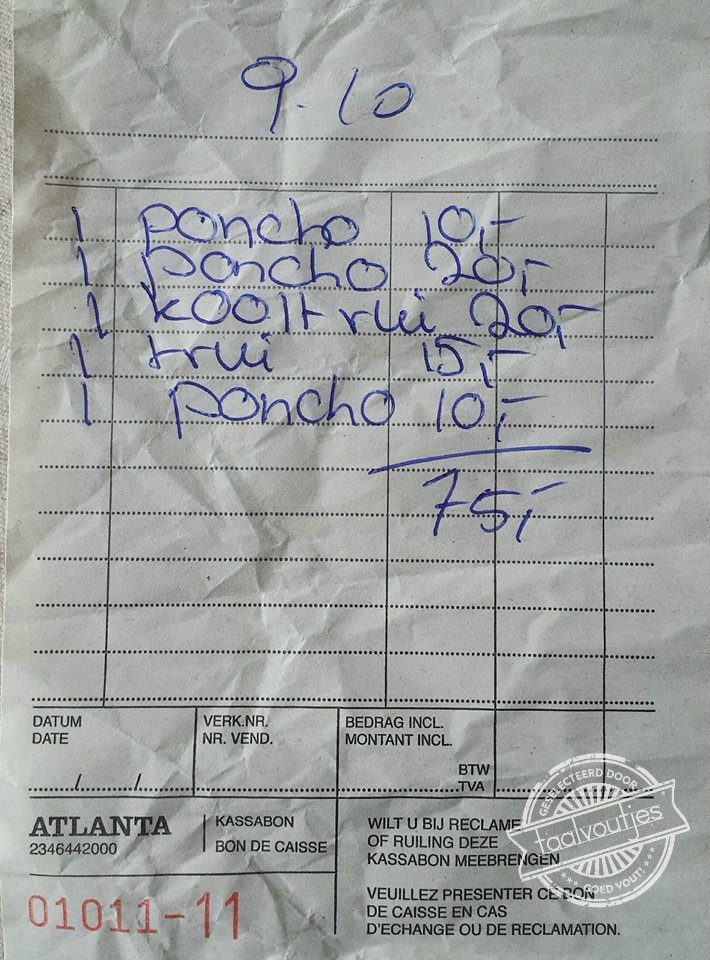 9.10
1 poncho 10,-
1 poncho 20,-
1 kooltrui 20,-
1 trui 15,-
1 poncho 10,-
75,-
DATUM VERK.NR. BEDRAG INCL.
DATE NR. VEND. MONTANT INCL.
BTW
/ / TVA
ATLANTA KASSABON
2346442000 BON DE CAISSE
01011-11
WILT U BIJ RECLAME
OF RUILING DEZE
KASSABON MEEBRENGEN
VEUILLEZ PRESENTER CE BON
DE CAISSE EN CAS
D'ECHANGE OU DE RECLAMATION.
GESELECTEERD DOOR
taalvoutjes
GOED VOUT!